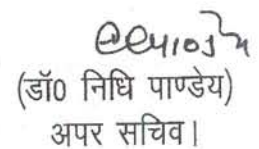 (डॉ0 निधि पाण्डेय)
अपर सचिव।